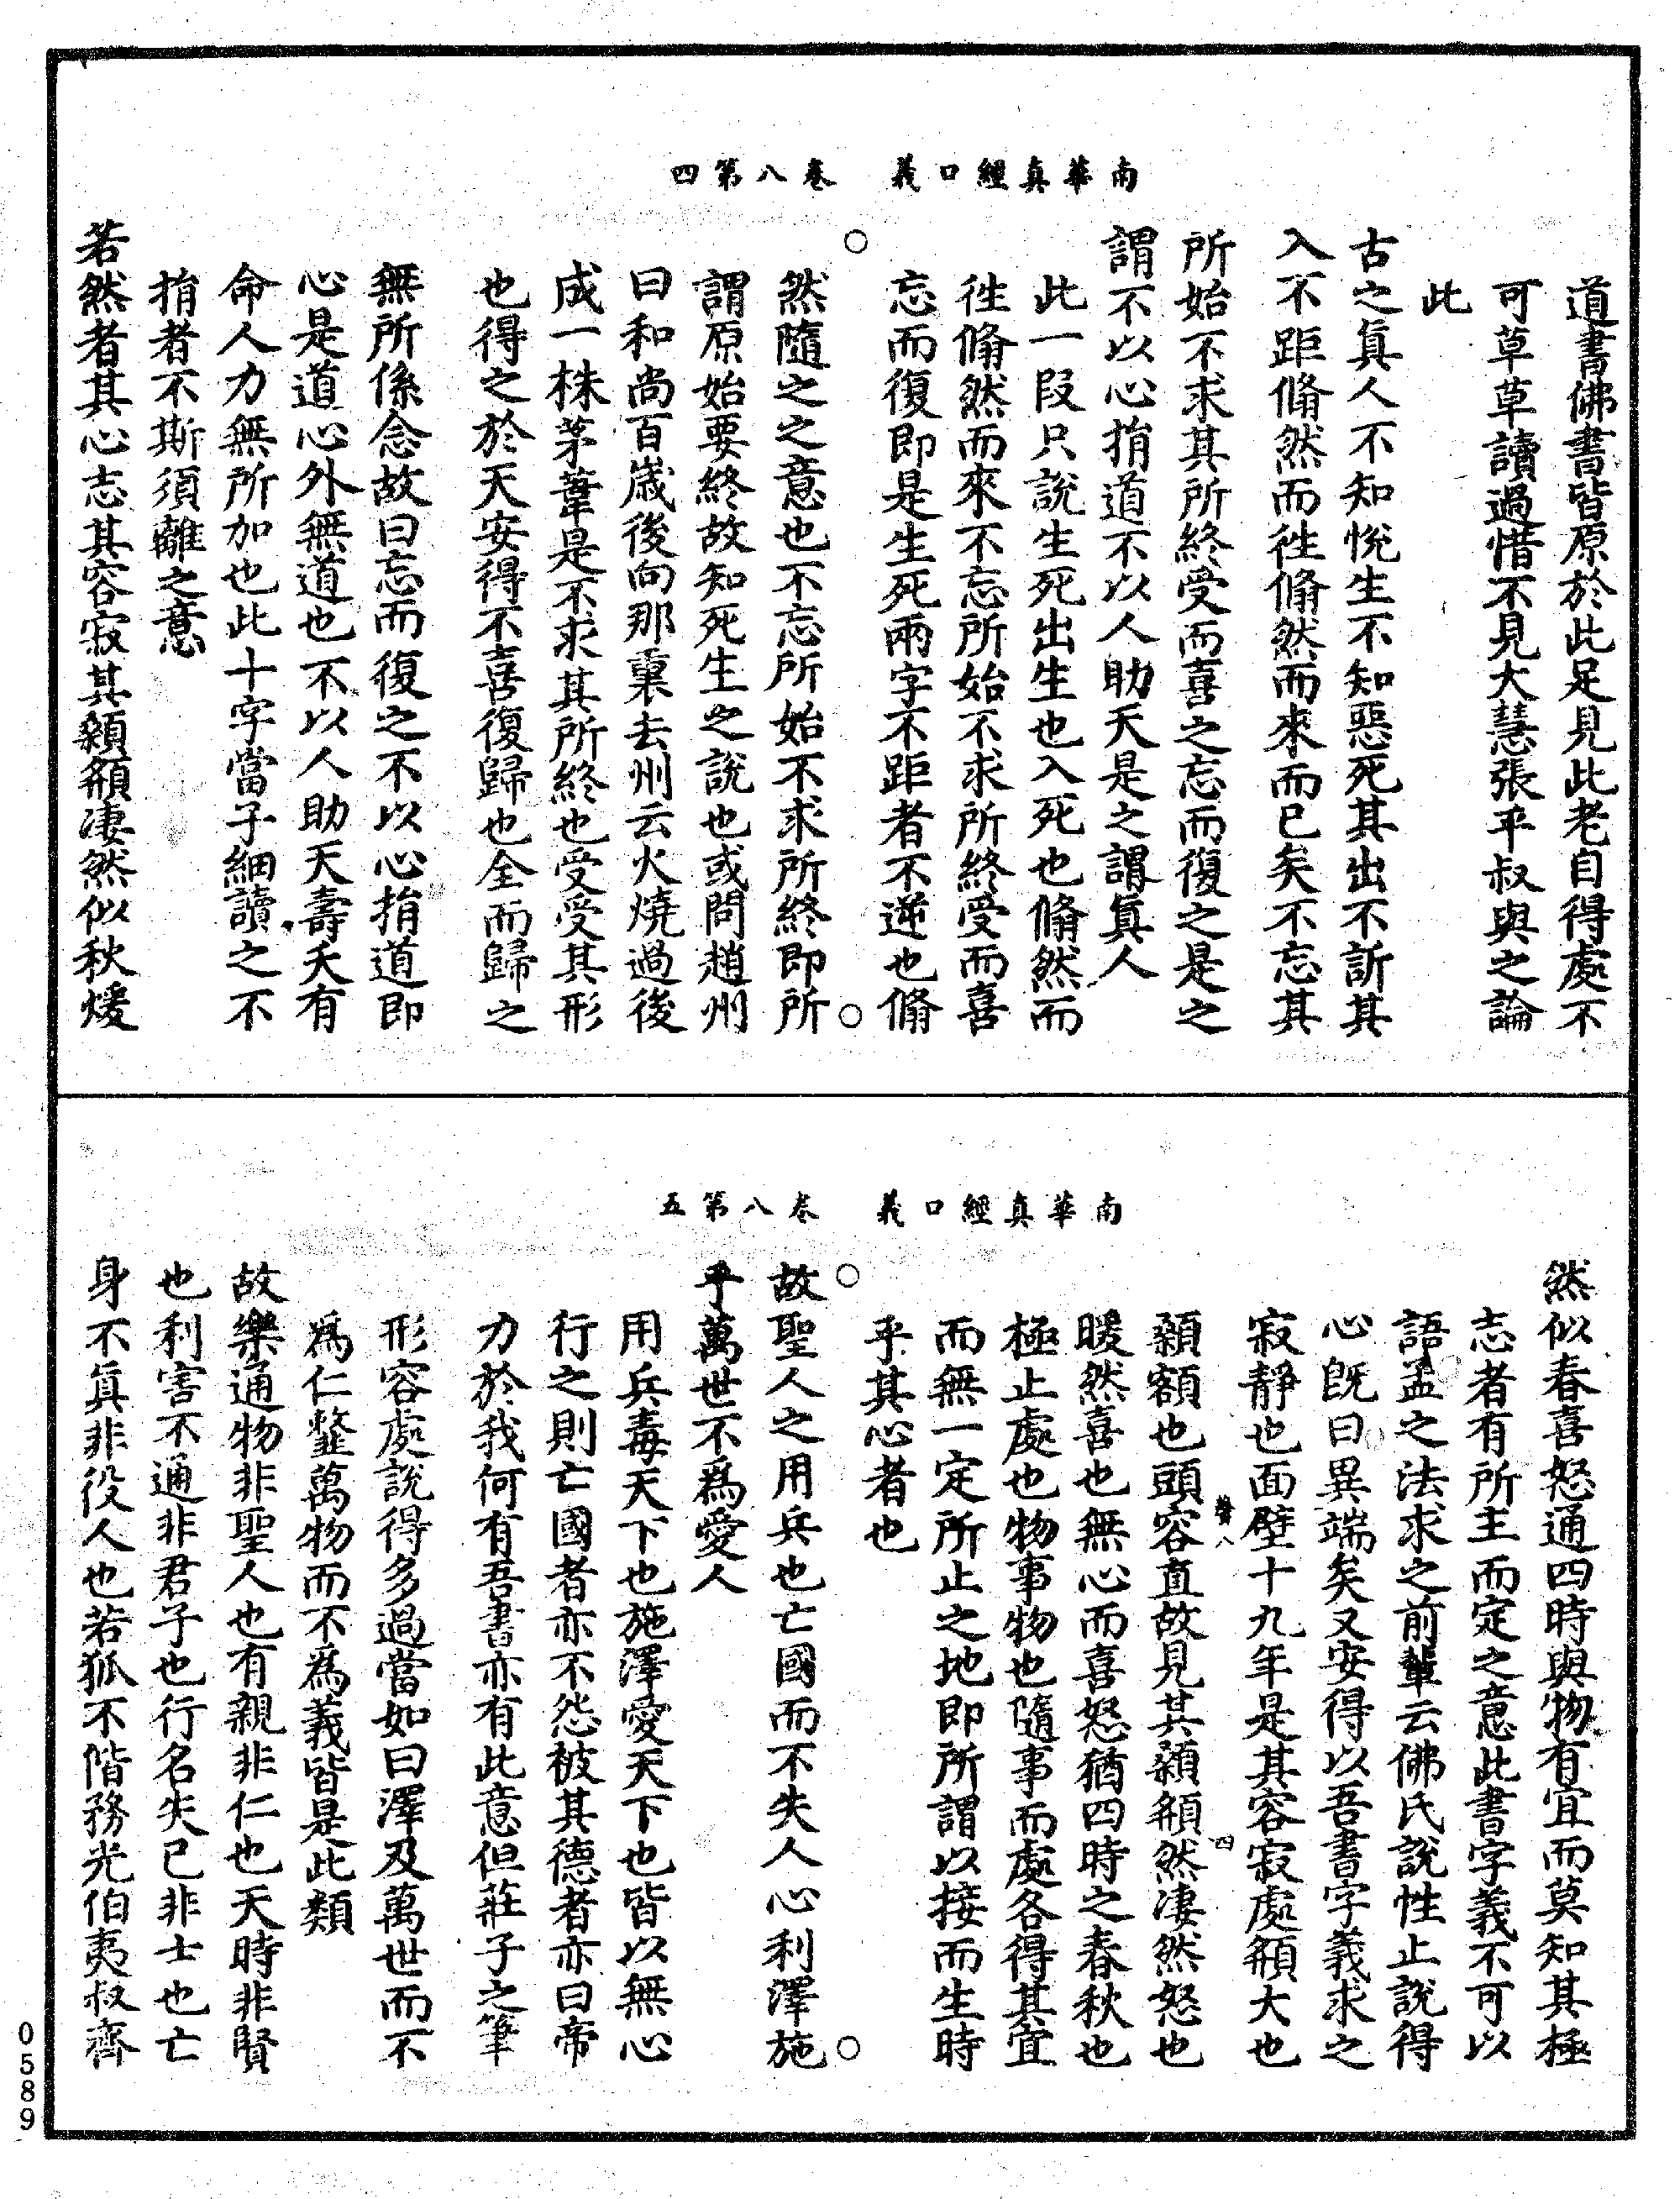 南華真經口義　卷八第四
道書佛書皆原於此足見此老自得處不
可草草讀過惜不見大慧張平叔與之論
此
古之眞人不知悅生不知惡死其出不訢其
入不距翛然而徃翛然而來而已矣不忘其
所始不求其所終受而喜之忘而復之是之
謂不以心揹道不以人助天是之謂眞人
此一段只說生死出生也入死也翛然而
徃翛然而來不忘所始不求所終受而喜
忘而復即是生死兩字不距者不逆也翛
然隨之之意也不忘所始不求所終即所
謂原始要終故知死生之說也或問趙州
曰和尚百歲後向那裏去州云火燒過後
成一株茅葦是不求其所終也受受其形
也得之於天安得不喜復歸也全而歸之
無所係念故曰忘而復之不以心揹道即
心是道心外無道也不以人助天壽夭有
命人力無所加也此十字當子細讀之不
揹者不斯須離之意
若然者其心志其容寂其顙頯凄然似秋煖
南華真經口義　卷八第五
然似春喜怒通四時與物有宜而莫知其極
志者有所主而定之意此書字義不可以
語孟之法求之前輩云佛氏說性止說得
心旣曰異端矣又安得以吾書字義求之
寂靜也面壁十九年是其容寂處頯大也
顙額也頭容直故見其顙頯然凄然怒也
暖然喜也無心而喜怒猶四時之春秋也
極止處也物事物也隨事而處各得其宜
而無一定所止之地即所謂以接而生時
乎其心者也
故聖人之用兵也亡國而不失人心利澤施
乎萬世不爲愛人
用兵毒天下也施澤愛天下也皆以無心
行之則亡國者亦不怨被其德者亦曰帝
力於我何有吾書亦有此意但莊子之筆
形容處說得多過當如曰澤及萬世而不
爲仁䪠萬物而不爲義皆是此類
故樂通物非聖人也有親非仁也天時非賢
也利害不通非君子也行名失已非士也亡
身不眞非役人也若狐不偕務光伯夷叔齊
0589